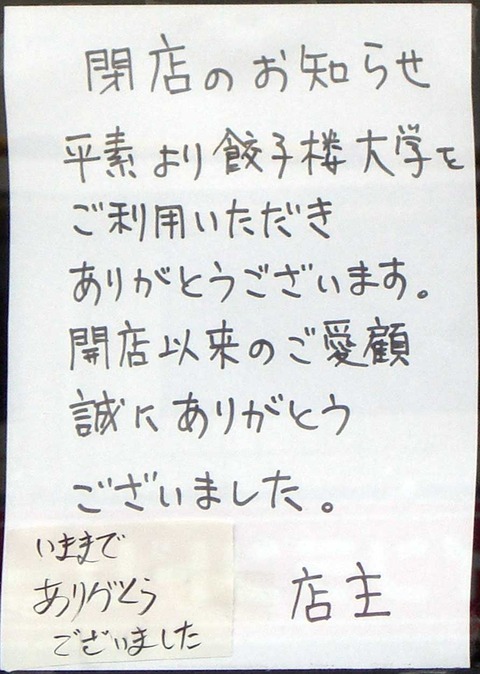 閉店のお知らせ
平素より餃子楼大学を
ご利用いただき
ありがとうございます。
開店以来のご愛顧
誠にありがとう
ございました。
店主
いままで
ありがとう
ございました